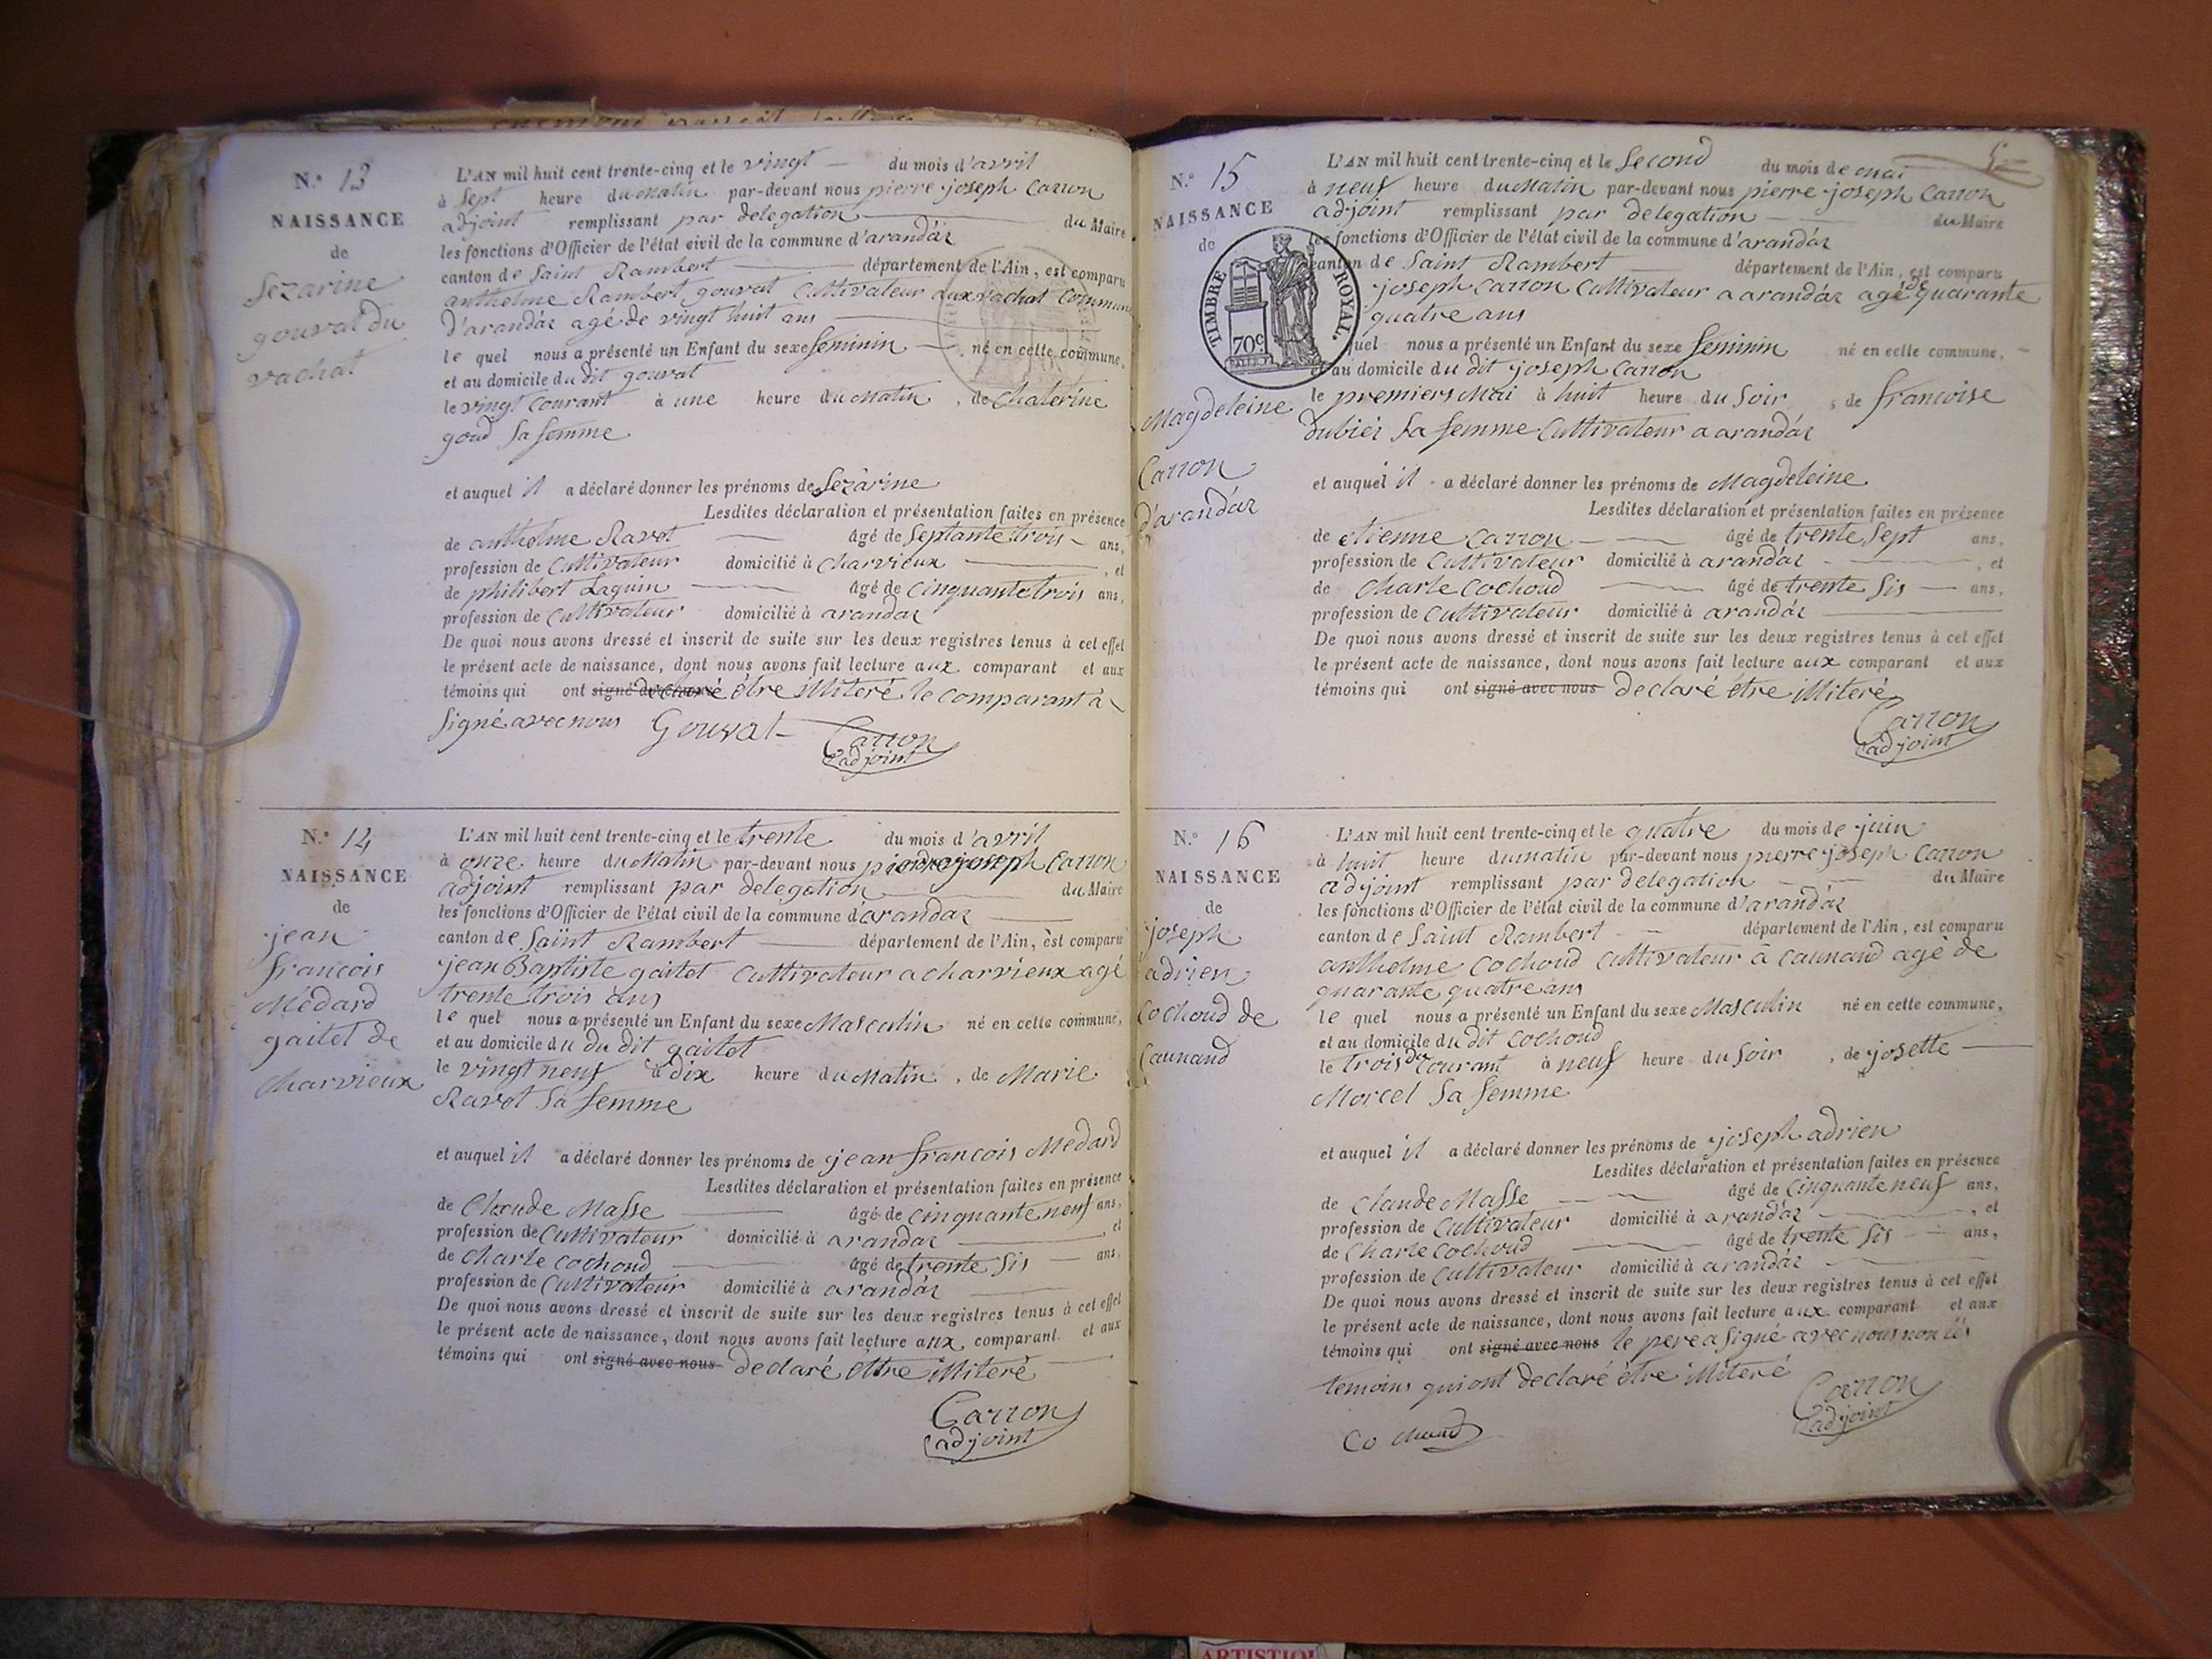 N.° 13
NAISSANCE
de
Sezarine
gouvat du
vachat
L'AN mil huit cent trente-cinq et le vingt du mois d'avril
à Sept heure du Matin par-devant nous pierre joseph Carron
adjoint remplissant par delegation du Maire
les fonctions d'Officier de l'état civil de la commune d'arandáz
canton de Saint Rambert département de l'Ain, est comparu
anthelme Rambert gouvat Cultivateur aux vachat Commune
d'arandáz agé de vingt huit ans
le quel nous a présenté un Enfant du sexe feminin né en cette commune,
et au domicile du dit gouvat
le vingt Courant à une heure du Matin, de Chaterine
goud Sa femme
et auquel il a déclaré donner les prénoms de Sezàrine
Lesdites déclaration et présentation faites en présence
de anthelme Ravot âgé de Septante trois ans,
profession de Cultivateur domicilié à Charvieux, et
de philibert Laguin âgé de Cinquante trois ans,
profession de Cultivateur domicilié à arandaz
De quoi nous avons dressé et inscrit de suite sur les deux registres tenus à cet effet
le présent acte de naissance, dont nous avons fait lecture aux comparant et aux
témoins qui ont signé declaré être illiteré le comparant à
Signé avec nous Gouvat Carron
adjoint
N.° 14
NAISSANCE
de
jean
francois
Médard
gaitet de
Charvieux
L'AN mil huit cent trente-cinq et le trente du mois d'avril
à onze heure du Matin par-devant nous pierre joseph Carron
adjoint remplissant par delegation du Maire
les fonctions d'Officier de l'état civil de la commune d'arandaz
canton de Saint Rambert département de l'Ain, est comparu
jean Baptiste gaitet Cultivateur a charvieux agé
trente trois ans
le quel nous a présenté un Enfant du sexe Masculin né en cette commune,
et au domicile du du dit gaitet
le vingt neuf à dix heure du Matin, de Marie
Ravot Sa femme
et auquel il a déclaré donner les prénoms de jean francois Medard
Lesdites déclaration et présentation faites en présence
de Claude Masse âgé de Cinquante neuf ans,
profession de Cultivateur domicilié à arandaz, et
de Charle Cochoud âgé de trente Sis ans,
profession de Cultivateur domicilié à arandáz
De quoi nous avons dressé et inscrit de suite sur les deux registres tenus à cet effet
le présent acte de naissance, dont nous avons fait lecture aux comparant et aux
témoins qui ont signé avec nous declaré être illiteré
Carron
adjoint
N.° 15
NAISSANCE
de
TIMBRE ROYAL.
70c
Magdeleine
Carron
d'arandáz
L'AN mil huit cent trente-cinq et le Second du mois de mai
à neuf heure du Matin par-devant nous pierre joseph Carron
adjoint remplissant par delegation du Maire
les fonctions d'Officier de l'état civil de la commune d'arandáz
canton de Saint Rambert département de l'Ain, est comparu
joseph Carron Cultivateur a arandáz agé de quarante
quatre ans
quel nous a présenté un Enfant du sexe feminin né en cette commune,
et au domicile du dit joseph Carron
le premiers Mai à huit heure du Soir, de francoise
dubiéz Sa femme Cultivateur a arandáz
et auquel il a déclaré donner les prénoms de Magdeleine
Lesdites déclaration et présentation faites en présence
de etienne Carron âgé de trente Sept ans,
profession de Cultivateur domicilié à arandáz, et
de Charle Cochoud âgé de trente Sis ans,
profession de Cultivateur domicilié à arandáz
De quoi nous avons dressé et inscrit de suite sur les deux registres tenus à cet effet
le présent acte de naissance, dont nous avons fait lecture aux comparant et aux
témoins qui ont signé avec nous declaré être illiteré
Carron
adjoint
N.° 16
NAISSANCE
de
joseph
adrien
Cochoud de
Caunand
L'AN mil huit cent trente-cinq et le quatre du mois de juin
à huit heure du matin par-devant nous pierre joseph Carron
adjoint remplissant par delegation du Maire
les fonctions d'Officier de l'état civil de la commune d'arandáz
canton de Saint Rambert département de l'Ain, est comparu
anthelme Cochoud Cultivateur à Caunand agé de
quarante quatre ans
le quel nous a présenté un Enfant du sexe Masculin né en cette commune,
et au domicile du dit Cochoud
le trois du Courant à neuf heure du Soir, de josette
Morcel Sa femme
et auquel il a déclaré donner les prénoms de joseph adrien
Lesdites déclaration et présentation faites en présence
de Claude Masse âgé de Cinquante neuf ans,
profession de Cultivateur domicilié à arandáz, et
de Charle Cochoud âgé de trente Sis ans,
profession de Cultivateur domicilié à arandáz
De quoi nous avons dressé et inscrit de suite sur les deux registres tenus à cet effet
le présent acte de naissance, dont nous avons fait lecture aux comparant et aux
témoins qui ont signé avec nous le pere a Signé avec nous non lés
temoins qui ont declaré être illiteré Carron
adjoint
Cochoud